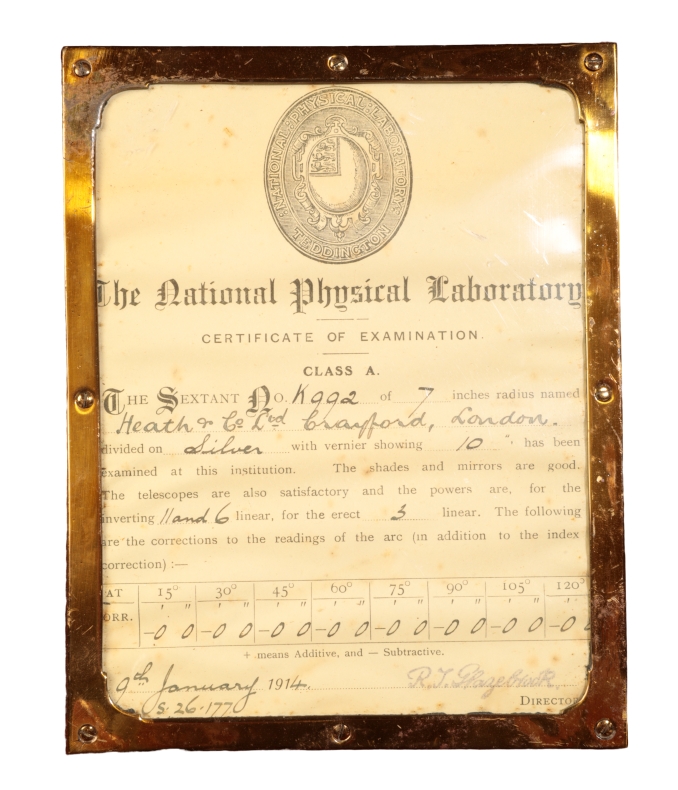 NATIONAL · PHYSICAL · LABORATORY
TEDDINGTON
The National Physical Laboratory
CERTIFICATE OF EXAMINATION.
CLASS A.
THE SEXTANT No. K992 of 7 inches radius named
Heath & Co Ltd Crayford, London.
divided on Silver with vernier showing 10 " has been
examined at this institution. The shades and mirrors are good.
The telescopes are also satisfactory and the powers are, for the
inverting 11 and 6 linear, for the erect 3 linear. The following
are the corrections to the readings of the arc (in addition to the index
correction) :—
AT 15° 30° 45° 60° 75° 90° 105° 120°
' " ' " ' " ' " ' " ' " ' " '
ORR. -0 0 -0 0 -0 0 -0 0 -0 0 -0 0 -0 0 -0
+ means Additive, and — Subtractive.
9th January 1914. R. T. Glazebrook
S.26.177 DIRECTOR